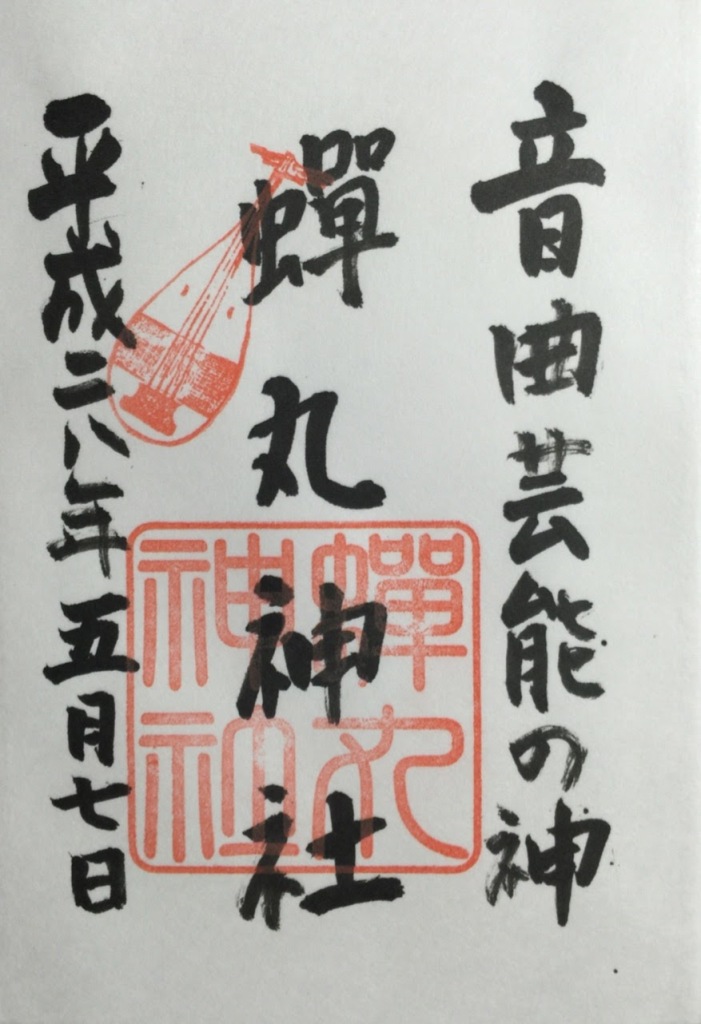 音曲芸能の神
蟬丸神社
平成二八年五月七日
蟬丸
神社